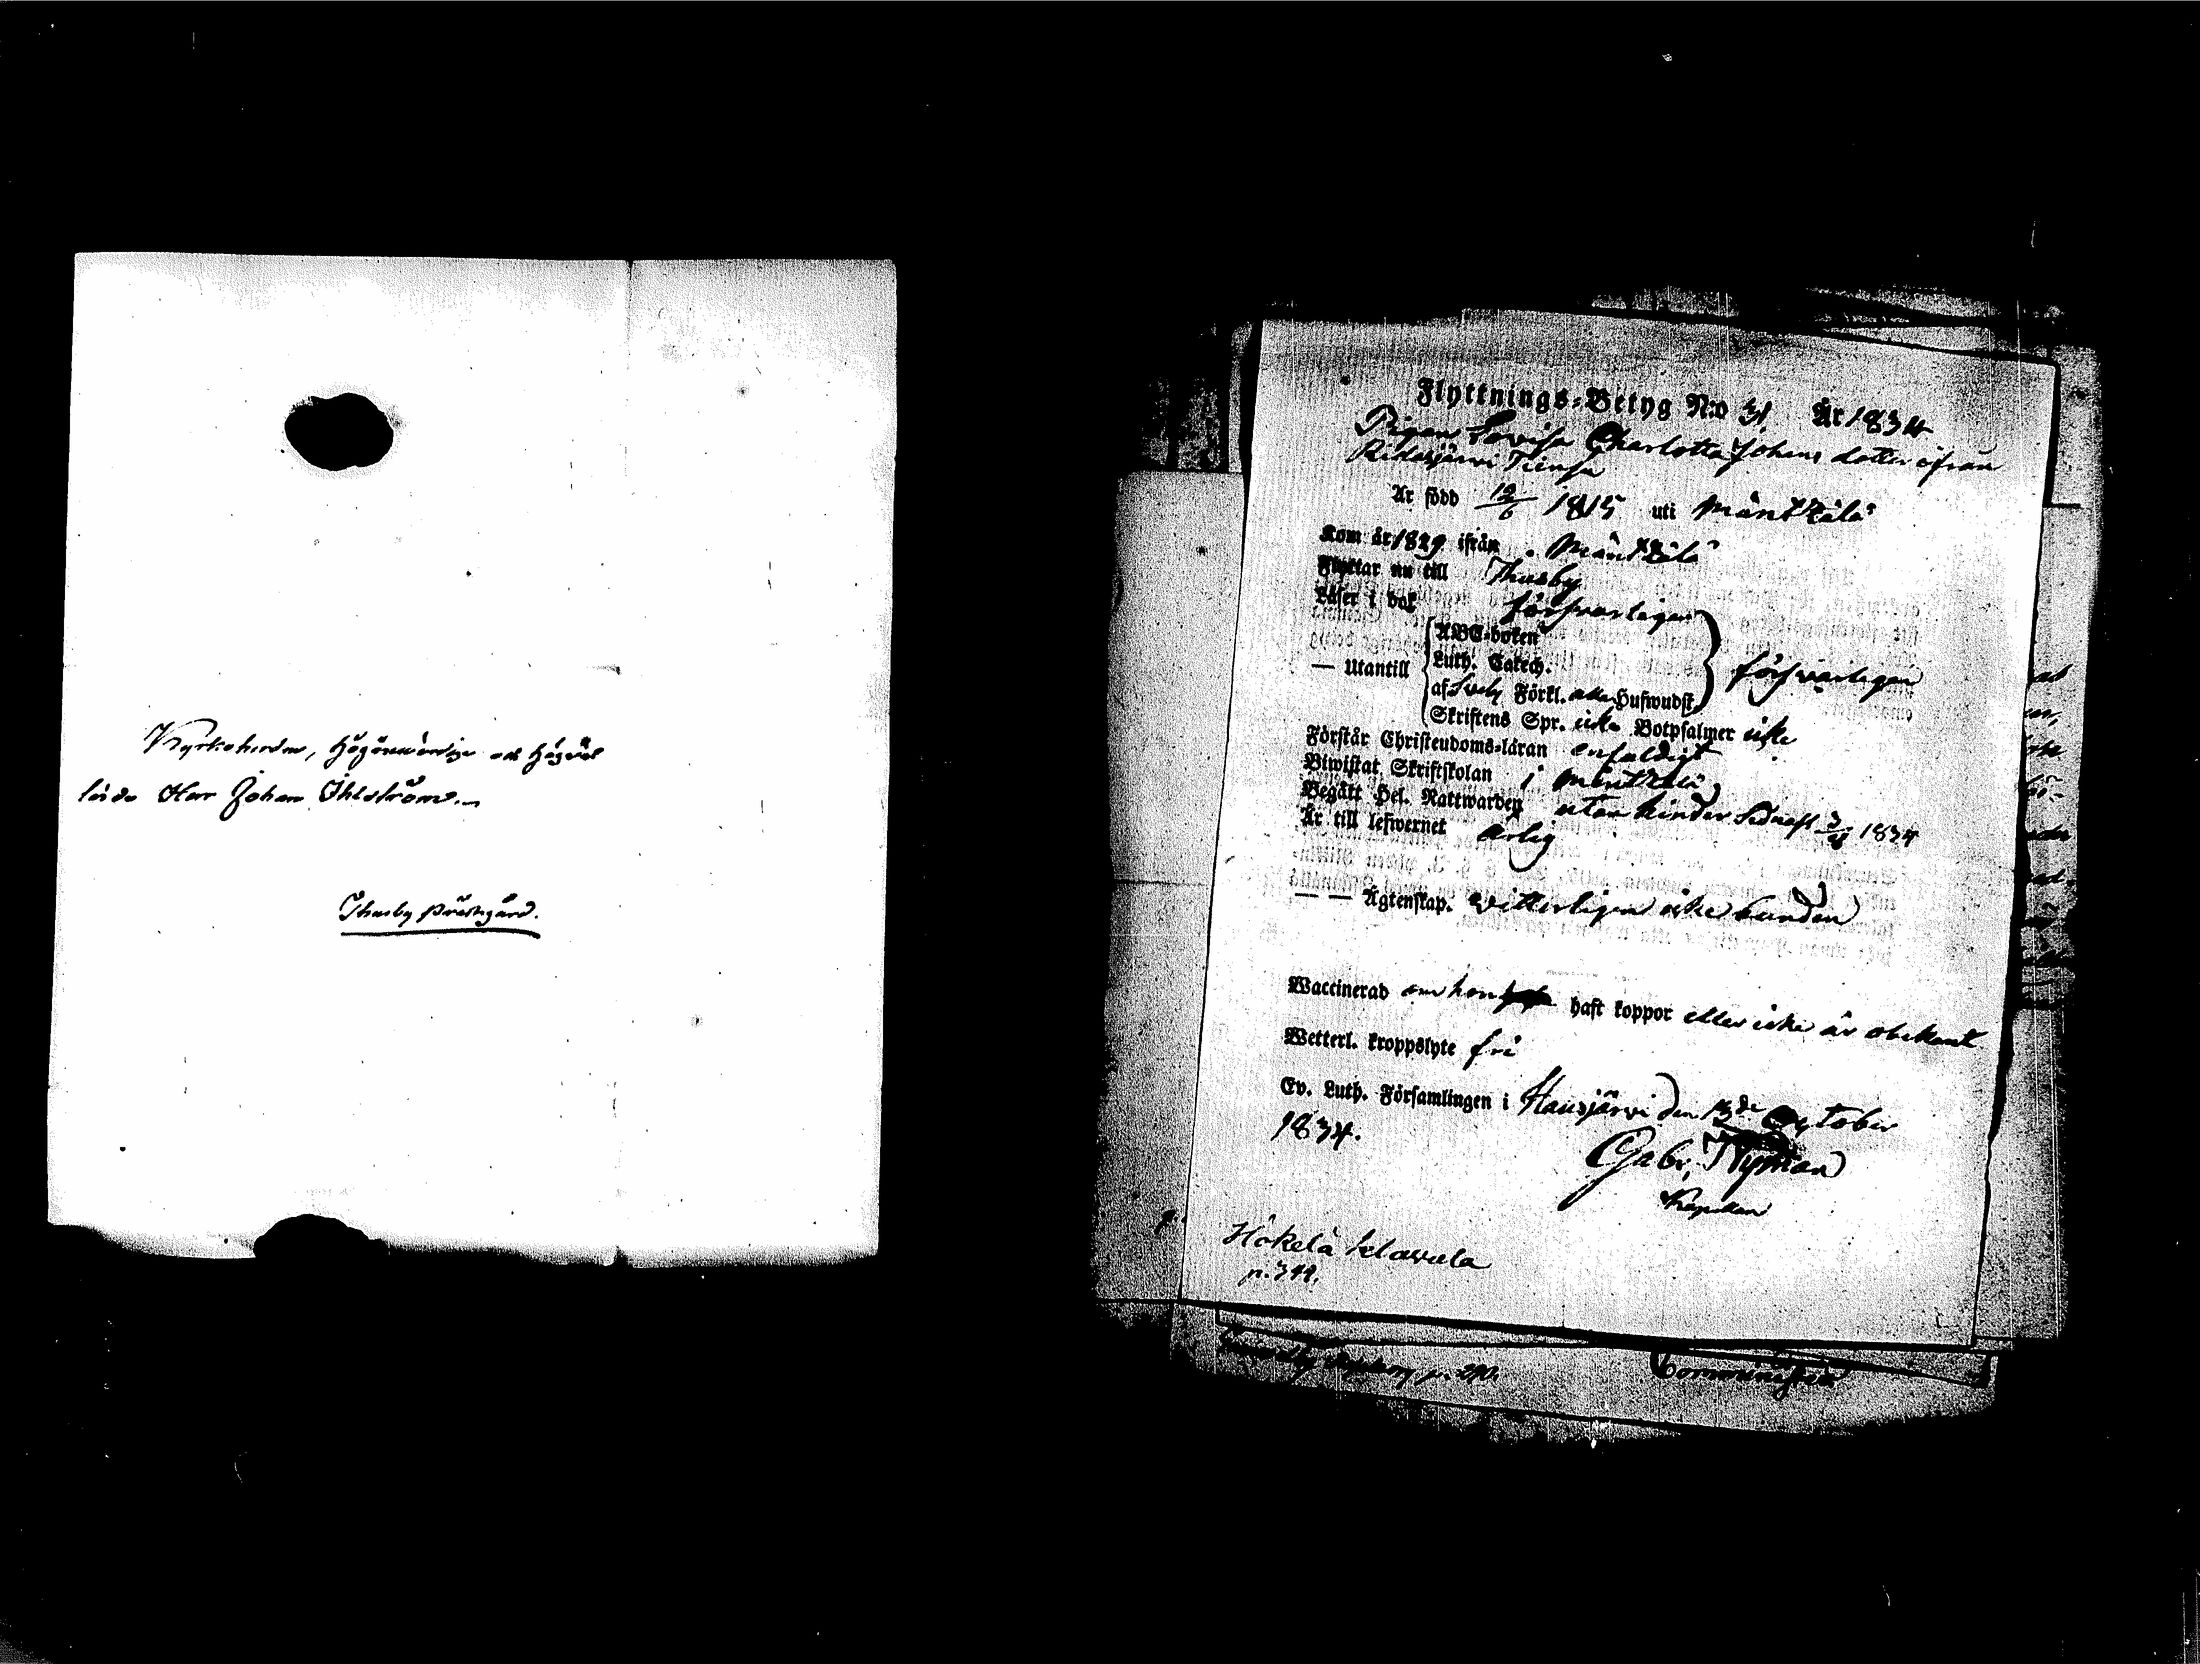 Kyrkoherden, Högärewördige och Högväl
lärde Herr Johan Ihlström.
Thusby prästgård.
Flyttnings-Betyg N:o 31. År 1834
Pigan Lovisa Charlotta Johans dotter ifrån
Ridasjärvi
Är född 12/6 1815 uti Mäntzälä
Kom år 1829 ifrån Mäntzälä
Flyttar nu till Thusby
Läser i bok försvarligen
— Utantill ABC-boken
Luth. Catech.
af Sveb. Förkl. alla Hufwudst. försvarligen
Skriftens Spr. icke Botpsalmer icke
Förstår Christendoms-läran enfaldigt
Biwistat Skriftskolan i Mäntzälä
Begått Hel. Nattwarden utan hinder sednast 1834
Är till lefwernet ärlig
— — Ägtenskap. witterligen icke bunden
Waccinerad om hon haft koppor eller icke är obekant
Wetterl. kroppslyte fri
Ev. Luth. Församlingen i Hausjärvi den 13de October
1834.
Gabr. Nyman
Kapellan
Hökelä Klavula
p. 344.